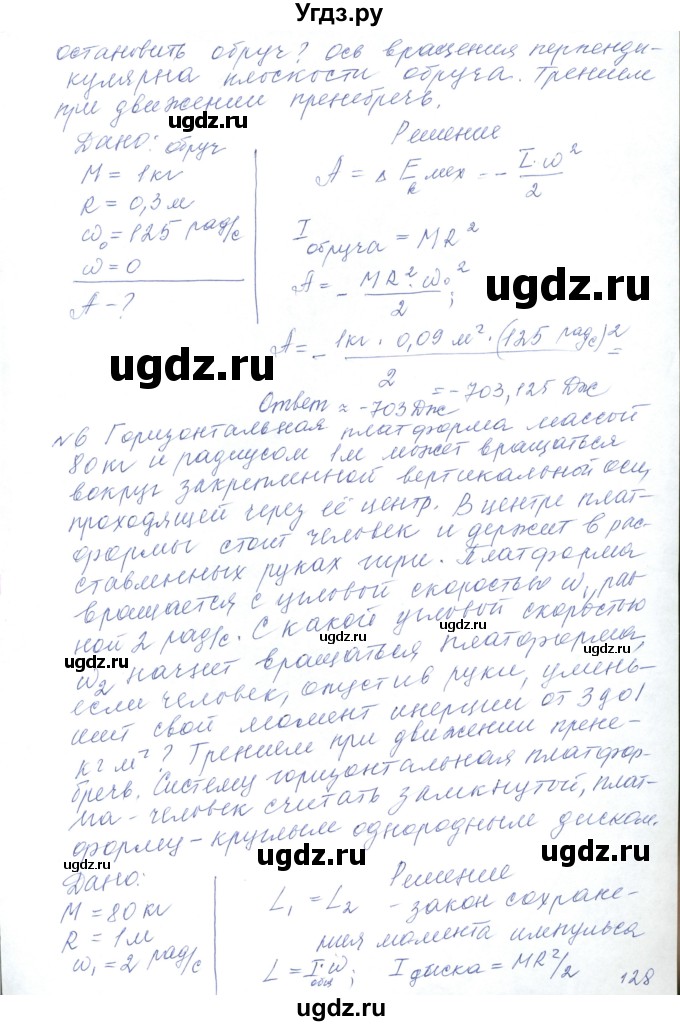 Угдз.ру
остановить обруч? Ось вращения перпенди-
кулярна плоскости обруча. Трением
при движении пренебречь.
ugdz.ru
ugdz.ru
Дано: обруч
M = 1 кг
R = 0,3 м
ω₀ = 125 рад/с
ω = 0
A - ?
Решение
A = Δ Eₖ мех = - I·ω²/2
I обруча = MR²
A = - MR²·ω₀²/2;
ugdz.ru
A = - 1 кг · 0,09 м² · (125 рад/с)²/2 =
ugdz.ru
ugdz.ru
= - 703,125 Дж
Ответ ≈ -703 Дж
№6 Горизонтальная платформа массой
80 кг и радиусом 1 м может вращаться
вокруг закрепленной вертикальной оси,
проходящей через её центр. В центре плат-
формы стоит человек и держит в рас-
ставленных руках гири. Платформа
вращается с угловой скоростью ω₁, рав
ной 2 рад/с. С какой угловой скоростью
ugdz.ru
ugdz.ru
ω₂ начнет вращаться платформа,
если человек, опустив руки, умень-
шит свой момент инерции от 3 до 1
кг м²? Трением при движении прене-
бречь. Систему горизонтальная платфор-
ма - человек считать замкнутой, плат-
форму - круглым однородным диском.
ugdz.ru
ugdz.ru
Дано:
M = 80 кг
R = 1 м
ω₁ = 2 рад/с
Решение
L₁ = L₂ - закон сохране-
ния момента импульса
L = I общ · ω; I диска = MR²/2
ugdz.ru
ugdz.ru
128
ugdz.ru